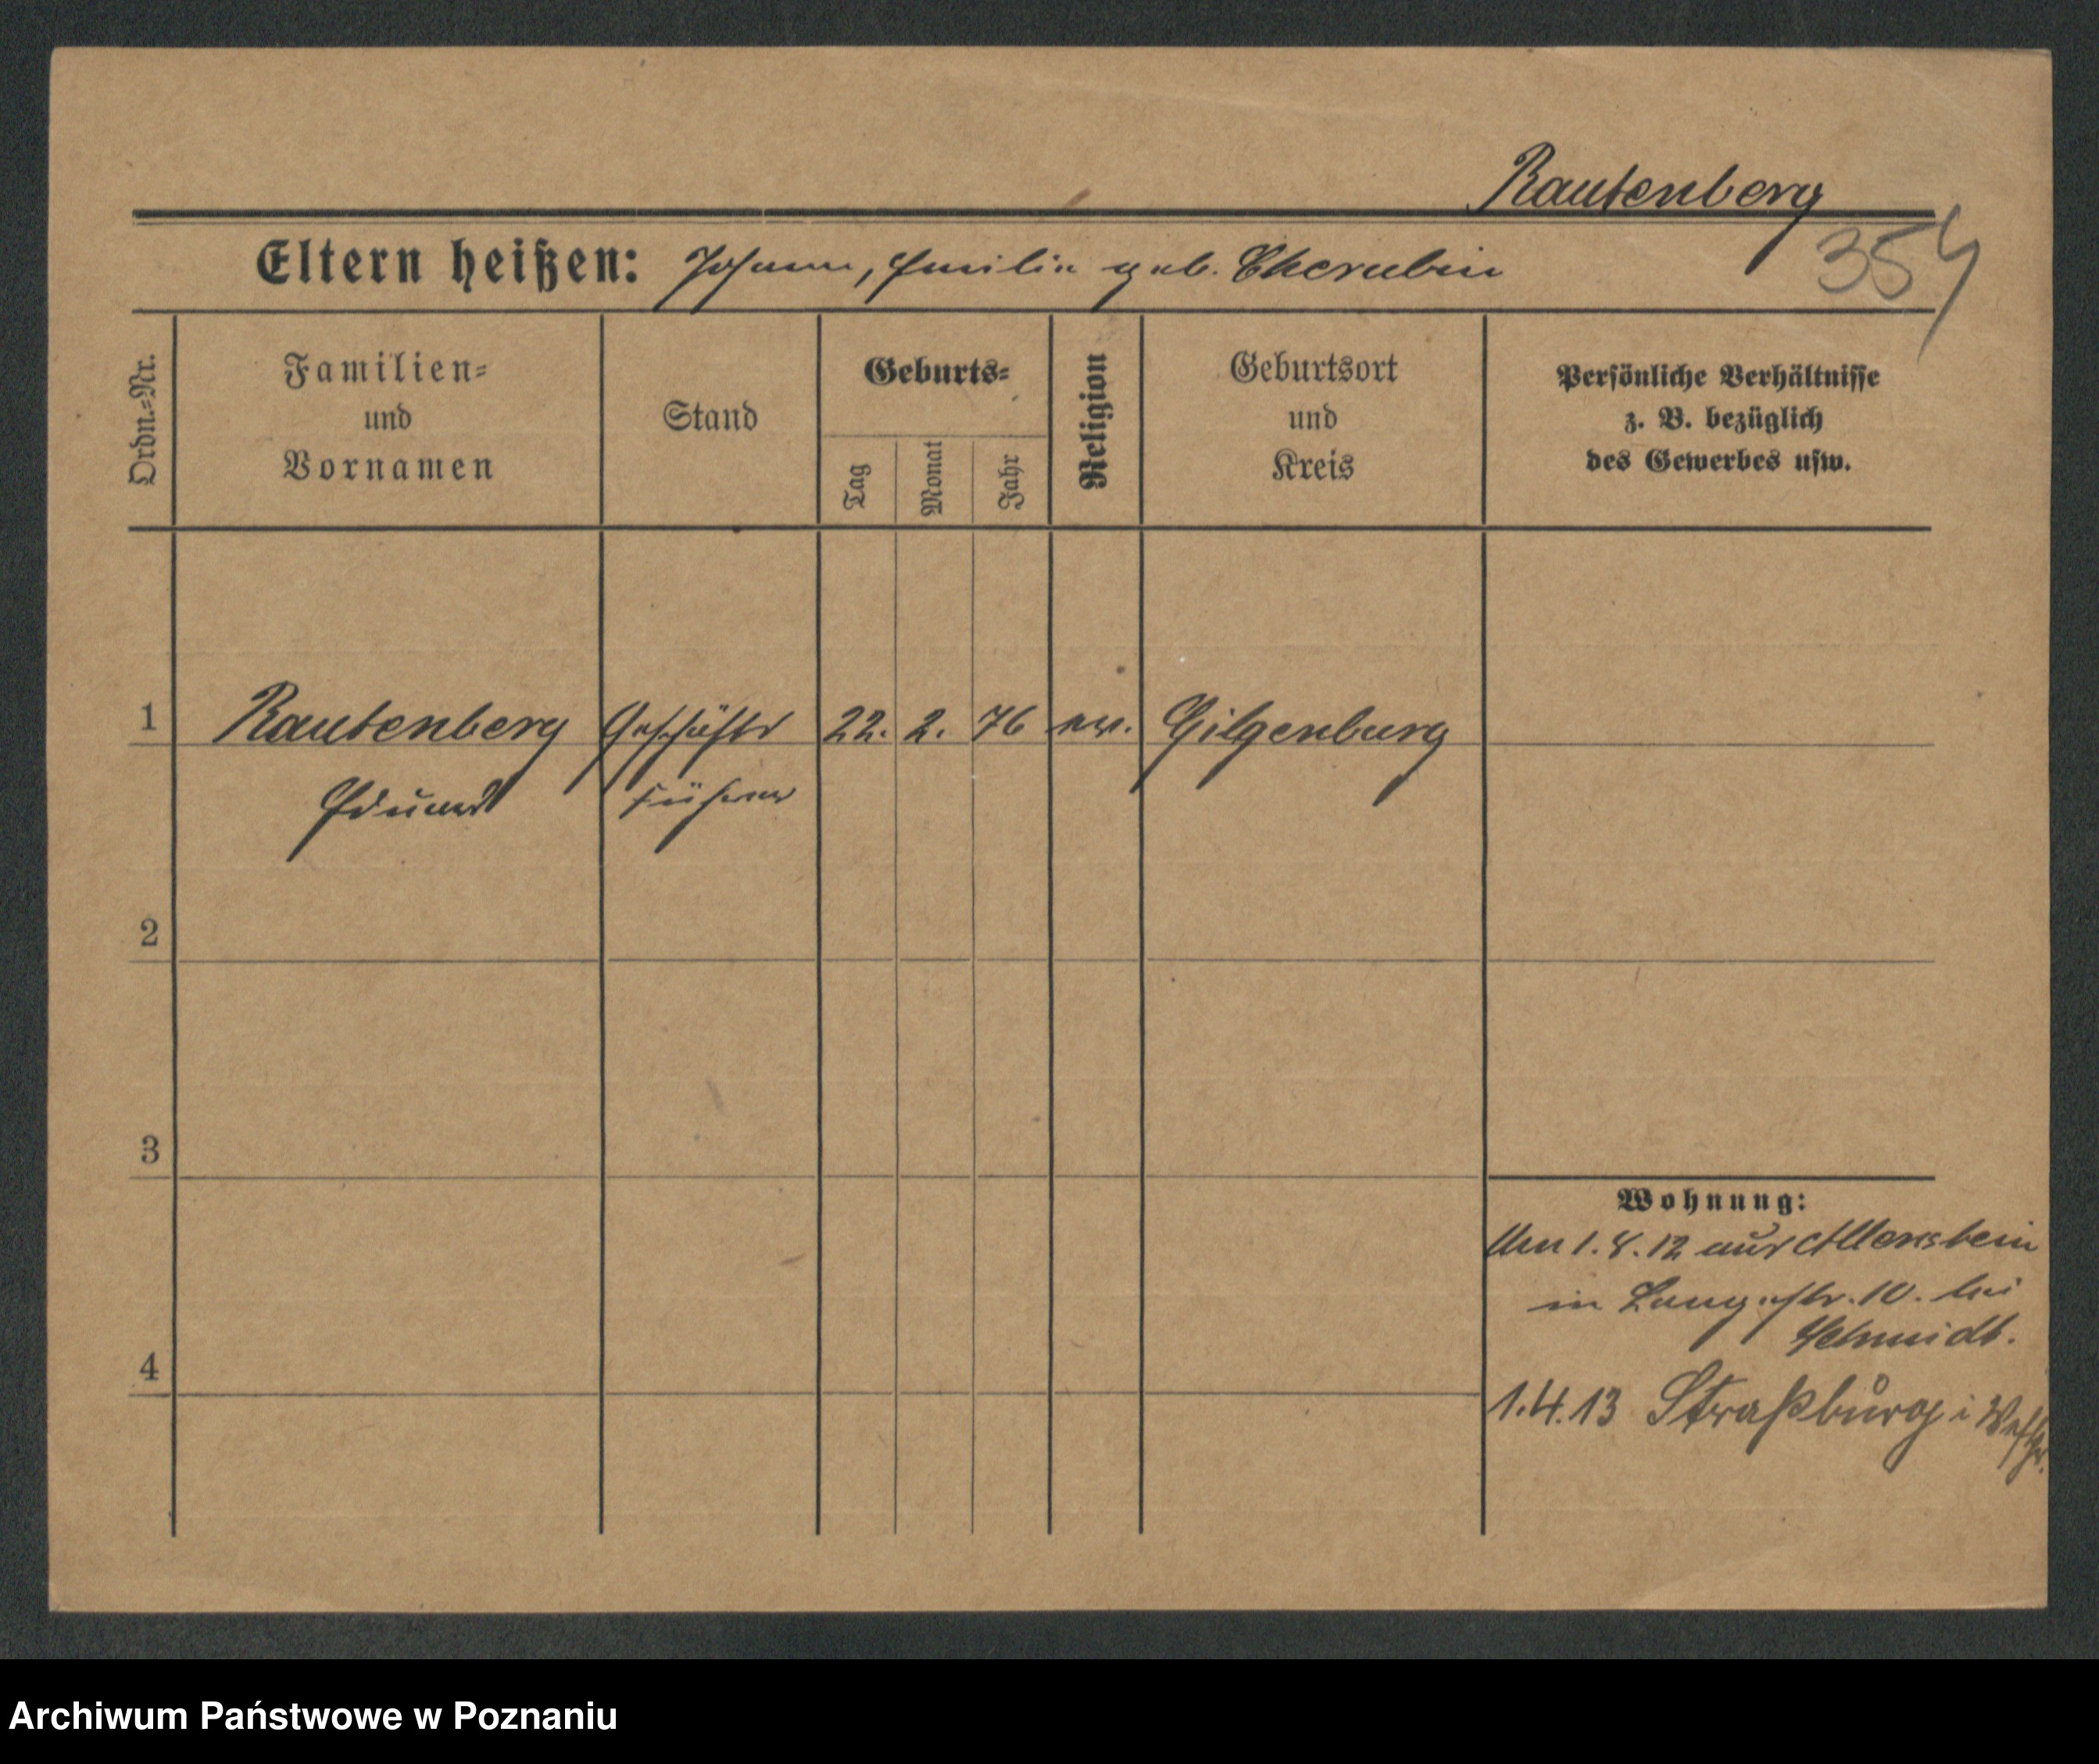 Rautenberg
354
Eltern heißen: Johann, Emilie geb. Cherubin
Ordn.-Nr.
Familien-
und
Vornamen
Stand
Geburts-
Tag
Monat
Jahr
Religion
Geburtsort
und
Kreis
Persönliche Verhältnisse
z. B. bezüglich
des Gewerbes usw.
1 Rautenberg Geschäfts 22. 2. 76 ev. Gilgenburg
Eduard führer
2
3
Wohnung:
1.8.12 aus Allenstein
in Langestr. 10. bei
Schmidt.
4
1.4.13 Straßburg i Westpr.
Archiwum Państwowe w Poznaniu